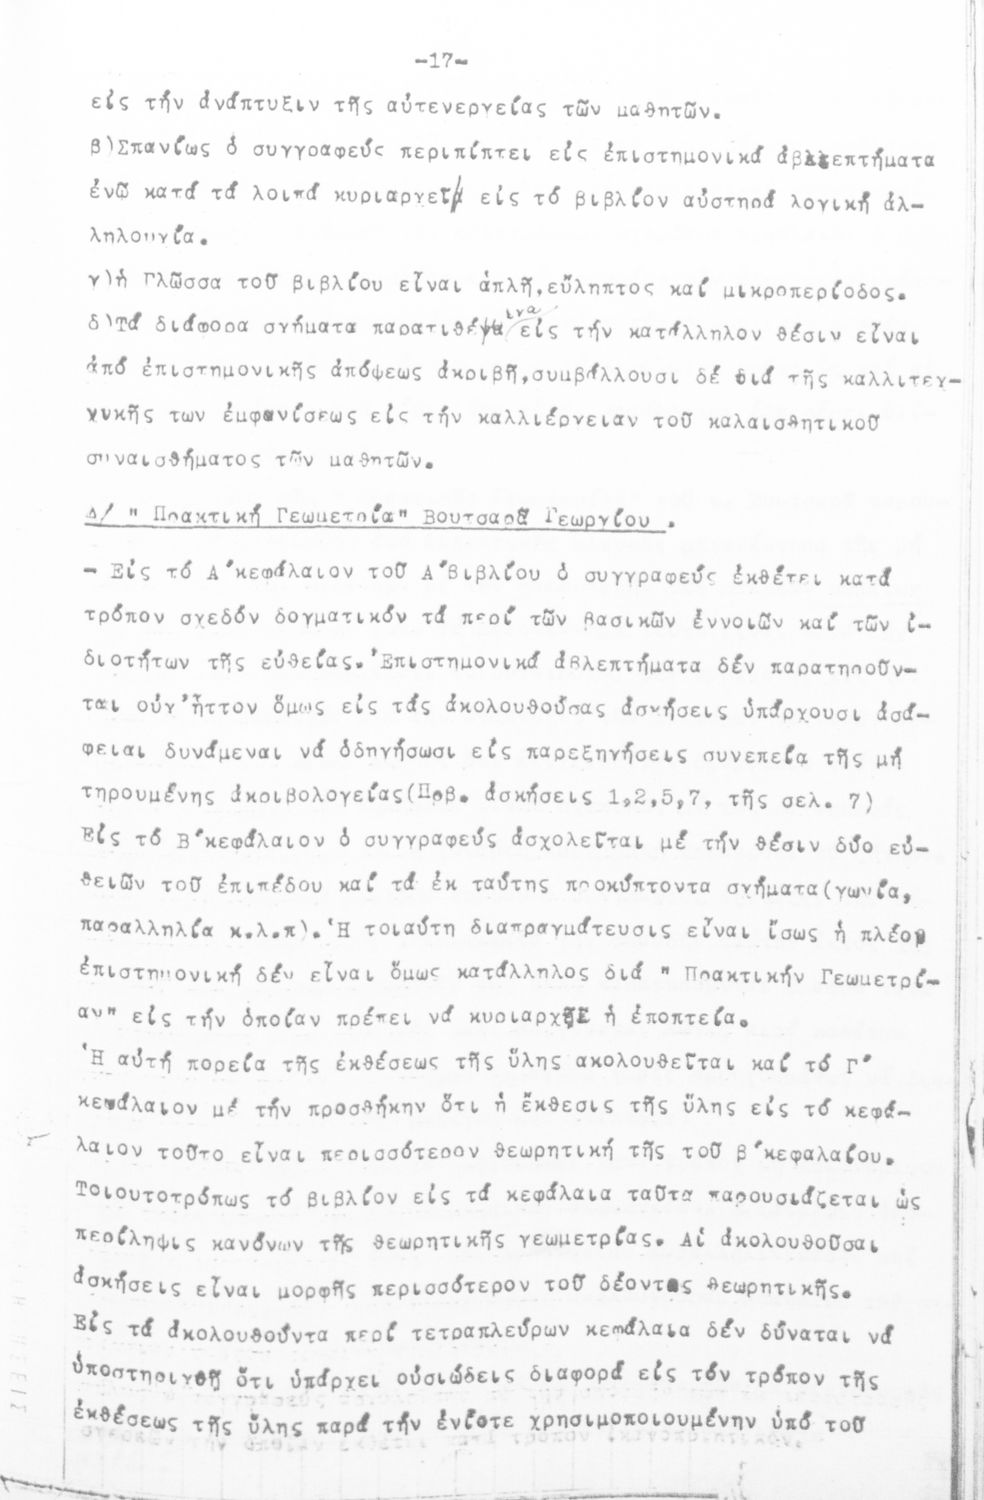 -17-
εἰς τήν ἀνάπτυξιν τῆς αὐτενεργείας τῶν μαθητῶν.
β)Σπανίως ὁ συγγραφεύς περιπίπτει εἰς ἐπιστημονικά ἀβλεπτήματα
ἐνῶ κατά τά λοιπά κυριαρχεῖ εἰς τό βιβλίον αὐστηρά λογική ἀλ-
ληλουχία.
γ)ἡ Γλῶσσα τοῦ βιβλίου εἶναι ἁπλῆ,εὔληπτος καί μικροπερίοδος.
δ)Τά διάφορα σχήματα παρατιθέμενα εἰς τήν κατάλληλον θέσιν εἶναι
ἀπό ἐπιστημονικῆς ἀπόψεως ἀκριβῆ,συμβάλλουσι δέ διά τῆς καλλιτεχ-
νικῆς των ἐμφανίσεως εἰς τήν καλλιέργειαν τοῦ καλαισθητικοῦ
συναισθήματος τῶν μαθητῶν.
Δ/ " Πρακτική Γεωμετρία" Βουτσαρᾶ Γεωργίου .
- Εἰς τό Α΄κεφάλαιον τοῦ Α΄βιβλίου ὁ συγγραφεύς ἐκθέτει κατά
τρόπον σχεδόν δογματικόν τά περί τῶν βασικῶν ἐννοιῶν καί τῶν ἰ-
διοτήτων τῆς εὐθείας.Ἐπιστημονικά ἀβλεπτήματα δέν παρατηροῦν-
ται οὐχ'ἧττον ὅμως εἰς τάς ἀκολουθούσας ἀσκήσεις ὑπάρχουσι ἀσά-
φειαι δυνάμεναι νά ὁδηγήσωσι εἰς παρεξηγήσεις συνεπείᾳ τῆς μή
τηρουμένης ἀκριβολογείας(Πρβ. ἀσκήσεις 1,2,5,7, τῆς σελ. 7)
Εἰς τό Β΄κεφάλαιον ὁ συγγραφεύς ἀσχολεῖται μέ τήν θέσιν δύο εὐ-
θειῶν τοῦ ἐπιπέδου καί τά ἐκ ταύτης προκύπτοντα σχήματα(γωνία,
παραλληλία κ.λ.π).Ἡ τοιαύτη διαπραγμάτευσις εἶναι ἴσως ἡ πλέον
ἐπιστημονική δέν εἶναι ὅμως κατάλληλος διά " Πρακτικήν Γεωμετρί-
αν" εἰς τήν ὁποίαν πρέπει νά κυριαρχῇ ἡ ἐποπτεία.
Ἡ αὐτή πορεία τῆς ἐκθέσεως τῆς ὕλης ακολουθεῖται καί τό Γ΄
κεφάλαιον μέ τήν προσθήκην ὅτι ἡ ἔκθεσις τῆς ὕλης εἰς τό κεφά-
λαιον τοῦτο εἶναι περισσότερον θεωρητική τῆς τοῦ β΄κεφαλαίου.
Τοιουτοτρόπως τό βιβλίον εἰς τά κεφάλαια ταῦτα παρουσιάζεται ὡς
περίληψις κανόνων τῆς θεωρητικῆς γεωμετρίας. Αἱ ἀκολουθοῦσαι
ἀσκήσεις εἶναι μορφῆς περισσότερον τοῦ δέοντος θεωρητικῆς.
Εἰς τά ἀκολουθοῦντα περί τετραπλεύρων κεφάλαια δέν δύναται νά
ὑποστηριχθῇ ὅτι ὑπάρχει οὐσιώδεις διαφορά εἰς τόν τρόπον τῆς
ἐκθέσεως τῆς ὕλης παρά τήν ἐνίοτε χρησιμοποιουμένην ὑπό τοῦ